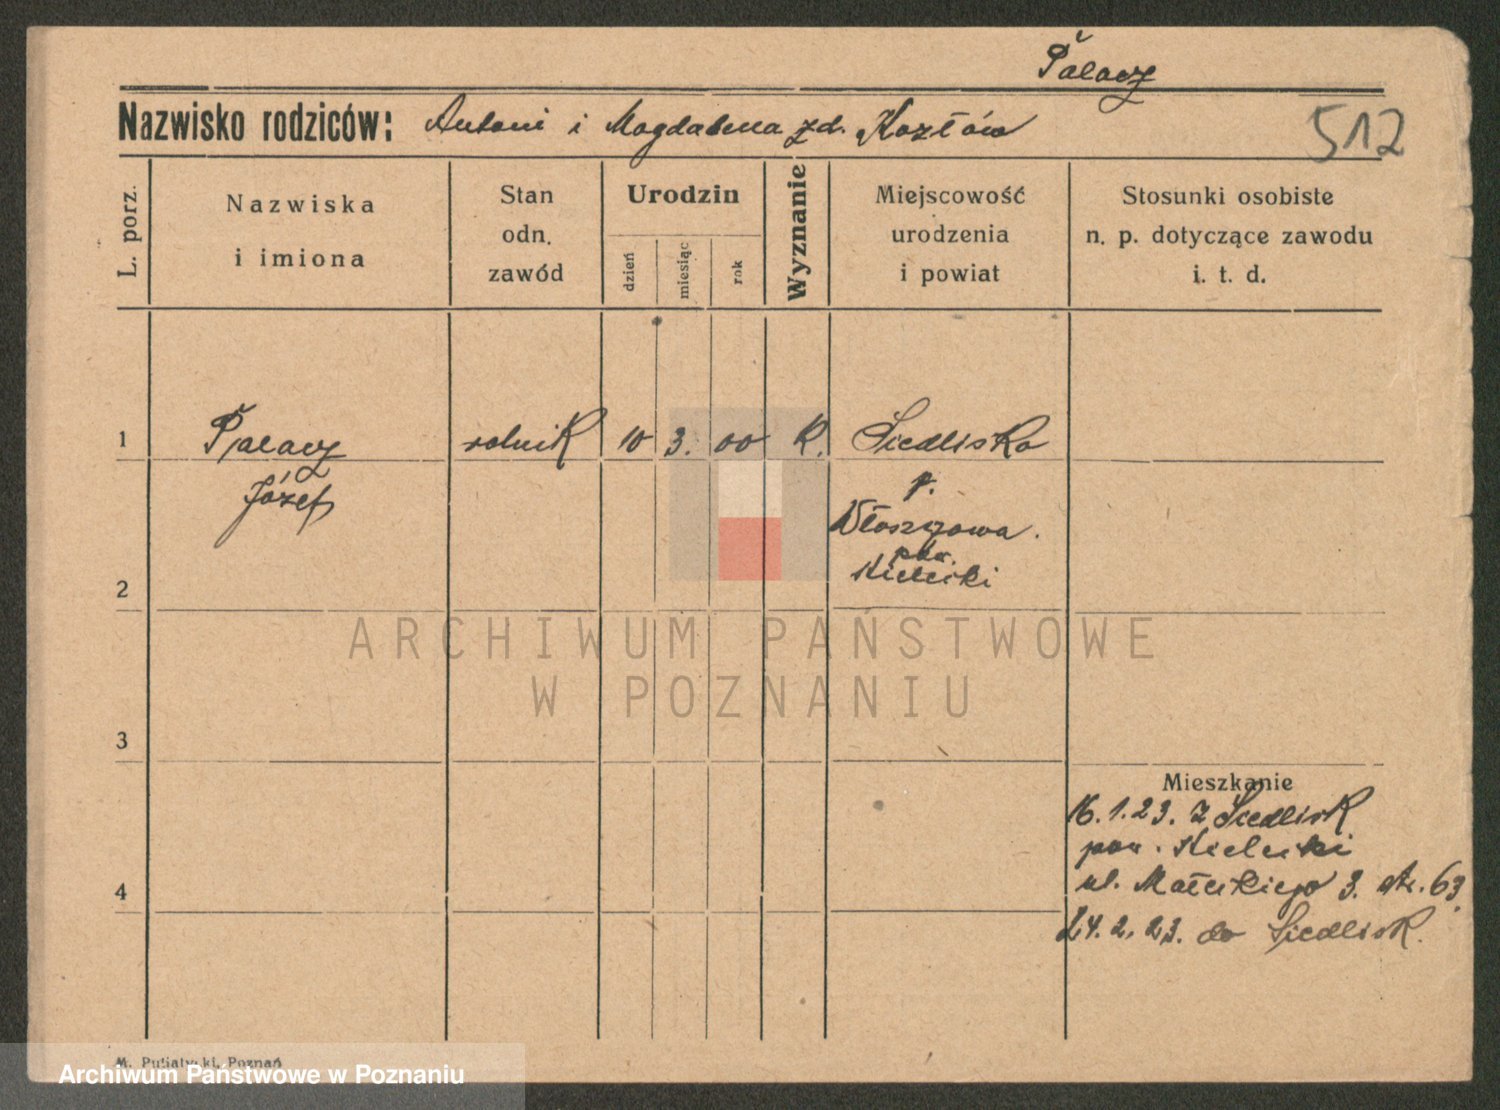 Pałacz
Nazwisko rodziców: Antoni i Magdalena zd. Kozłów
512
L. porz.
Nazwiska
i imiona
Stan
odn.
zawód
Urodzin
dzień
miesiąc
rok
Wyznanie
Miejscowość
urodzenia
i powiat
Stosunki osobiste
n. p. dotyczące zawodu
i. t. d.
1 Pałacz rolnik 10 3. 00 K. Siedliska
Józef
p.
Włoszczowa.
pow.
Kielecki
2
ARCHIWUM PAŃSTWOWE
W POZNANIU
3
Mieszkanie
16.1.23. z Siedlisk
pow. Kielecki
ul. Małeckiego 3. str. 63.
4
24.2.23. do Siedlisk.
M. Putiatycki, Poznań
Archiwum Państwowe w Poznaniu